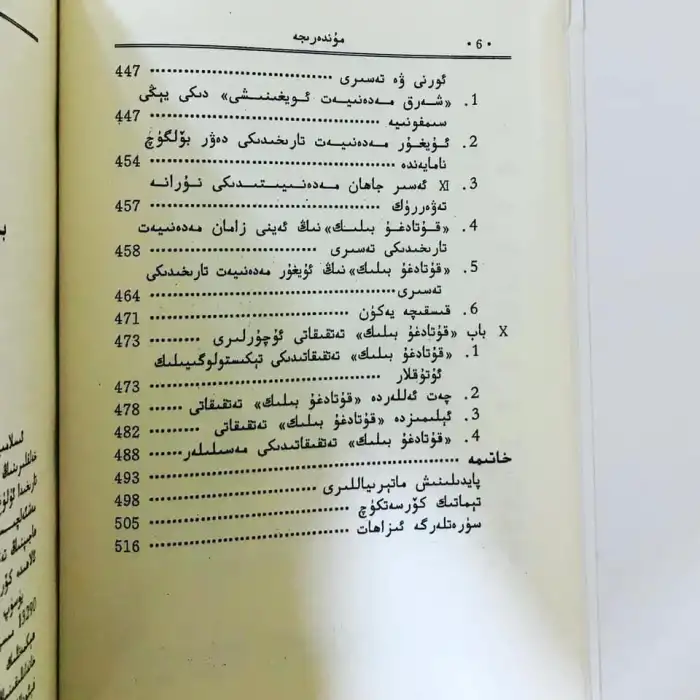 · 6 · مۇندەرىجە
ئورنى ۋە تەسىرى ································ 447
1. «شەرق مەدەنىيەت ئويغىنىشى» دىكى يېڭى
سىمفونىيە ································ 447
2. ئۇيغۇر مەدەنىيەت تارىخىدىكى دەۋر بۆلگۈچ
نامايەندە ································ 454
3. XI ئەسىر جاھان مەدەنىيىتىدىكى نۇرانە
تەۋەررۈك ································ 457
4. «قۇتادغۇ بىلىك» نىڭ ئەينى زامان مەدەنىيەت
تارىخىدىكى تەسىرى ························ 458
5. «قۇتادغۇ بىلىك» نىڭ ئۇيغۇر مەدەنىيەت تارىخىدىكى
تەسىرى ································ 464
6. قىسقىچە يەكۈن ························ 471
X باب «قۇتادغۇ بىلىك» تەتقىقاتى ئۇچۇرلىرى ········· 473
1. «قۇتادغۇ بىلىك» تەتقىقاتىدىكى تېكىستولوگىيىلىك
ئۇتۇقلار ································ 473
2. چەت ئەللەردە «قۇتادغۇ بىلىك» تەتقىقاتى ······ 478
3. ئېلىمىزدە «قۇتادغۇ بىلىك» تەتقىقاتى ········· 482
4. «قۇتادغۇ بىلىك» تەتقىقاتىدىكى مەسىلىلەر ······ 488
خاتىمە ································ 493
پايدىلىنىش ماتېرىياللىرى ························ 498
تېماتىك كۆرسەتكۈچ ························ 505
سۈرەتلەرگە ئىزاھات ························ 516
13290